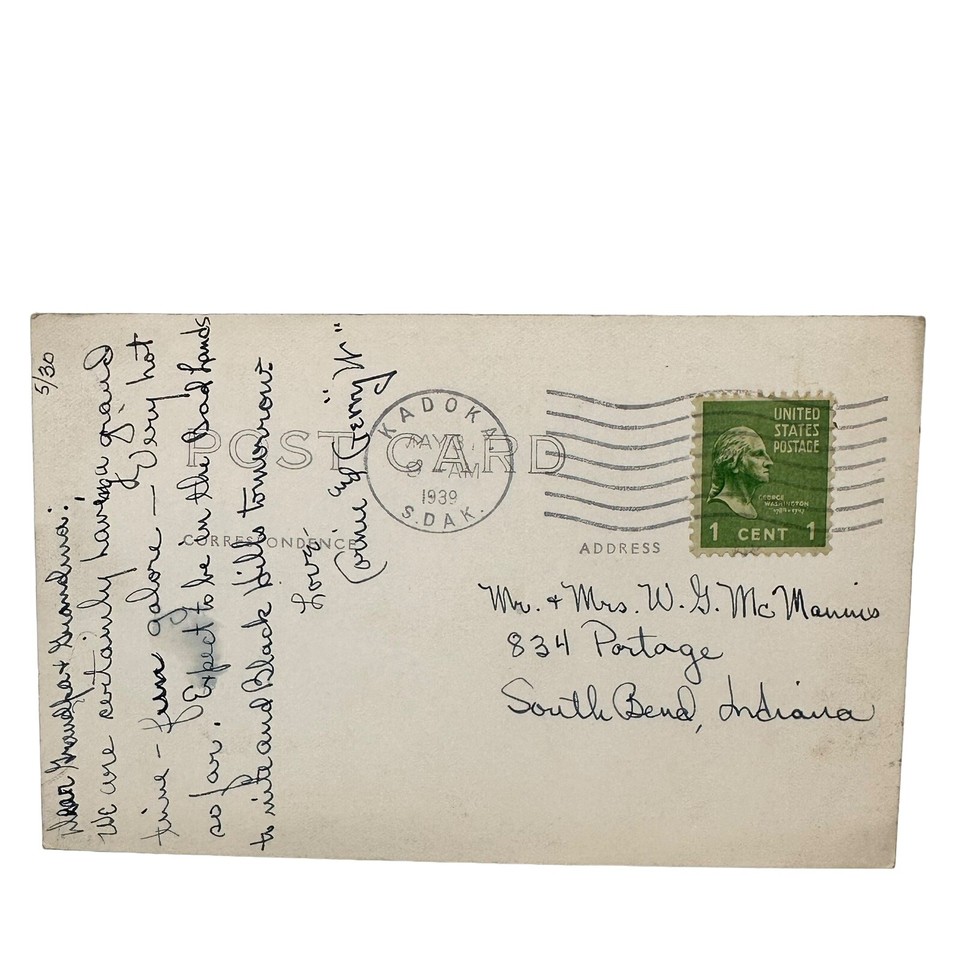 5/30
Dear Grandpa + Grandma:
We are certainly having a grand
time - fun galore - Very hot
so far. Expect to be in the Bad Lands
tonite and Black Hills tomorrow.
Love
Corine and "Jerry N."
POST CARD
CORRESPONDENCE
ADDRESS
KADOKA
MAY
9 AM
1939
S.DAK.
UNITED
STATES
POSTAGE
GEORGE
WASHINGTON
1789-1797
1 CENT 1
Mr. + Mrs. W. G. McMannis
834 Portage
South Bend, Indiana